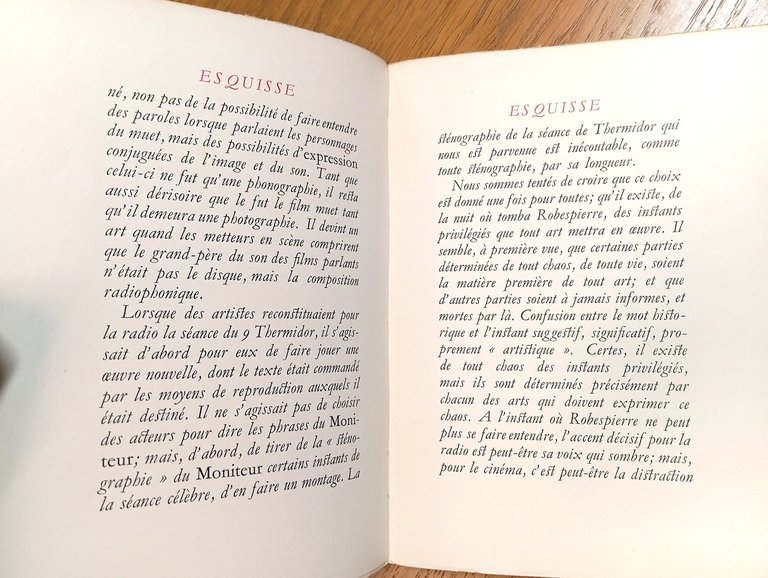 ESQUISSE
né, non pas de la possibilité de faire entendre
des paroles lorsque parlaient les personnages
du muet, mais des possibilités d'expression
conjuguées de l'image et du son. Tant que
celui-ci ne fut qu'une phonographie, il resta
aussi dérisoire que le fut le film muet tant
qu'il demeura une photographie. Il devint un
art quand les metteurs en scène comprirent
que le grand-père du son des films parlants
n'était pas le disque, mais la composition
radiophonique.
Lorsque des artistes reconstituaient pour
la radio la séance du 9 Thermidor, il s'agis-
sait d'abord pour eux de faire jouer une
œuvre nouvelle, dont le texte était commandé
par les moyens de reproduction auxquels il
était destiné. Il ne s'agissait pas de choisir
des acteurs pour dire les phrases du Moni-
teur; mais, d'abord, de tirer de la « sténo-
graphie » du Moniteur certains instants de
la séance célèbre, d'en faire un montage. La
ESQUISSE
sténographie de la séance de Thermidor qui
nous est parvenue est inécoutable, comme
toute sténographie, par sa longueur.
Nous sommes tentés de croire que ce choix
est donné une fois pour toutes; qu'il existe, de
la nuit où tomba Robespierre, des instants
privilégiés que tout art mettra en œuvre. Il
semble, à première vue, que certaines parties
déterminées de tout chaos, de toute vie, soient
la matière première de tout art; et que
d'autres parties soient à jamais informes, et
mortes par là. Confusion entre le mot histo-
rique et l'instant suggestif, significatif, pro-
prement « artistique ». Certes, il existe
de tout chaos des instants privilégiés,
mais ils sont déterminés précisément par
chacun des arts qui doivent exprimer ce
chaos. A l'instant où Robespierre ne peut
plus se faire entendre, l'accent décisif pour la
radio est peut-être sa voix qui sombre; mais,
pour le cinéma, c'est peut-être la distraction